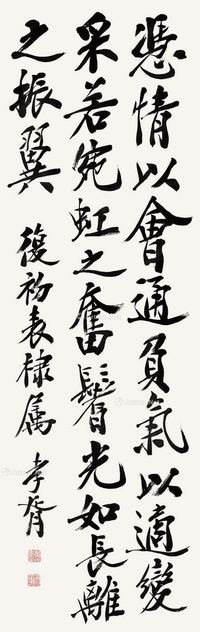 憑情以會通負氣以適變
采若宛虹之奮鬐光如長離
之振翼
復初表棣属 孝胥